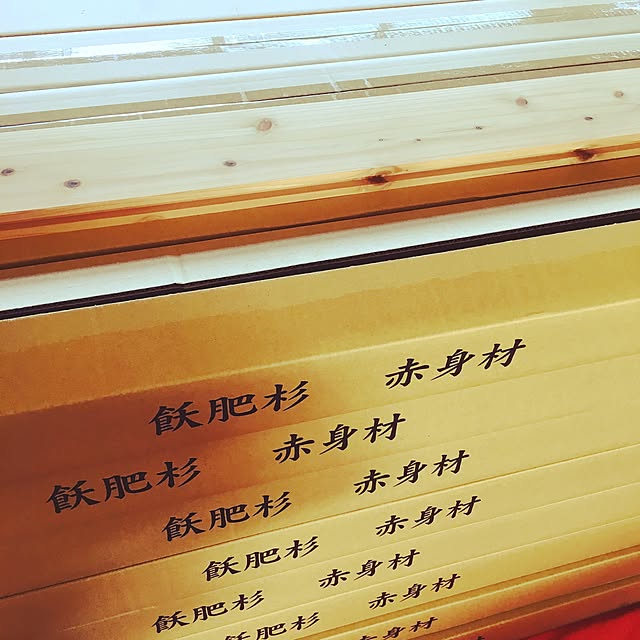 飫肥杉 赤身材
飫肥杉 赤身材
飫肥杉 赤身材
飫肥杉 赤身材
飫肥杉 赤身材
飫肥杉 赤身材
赤身材